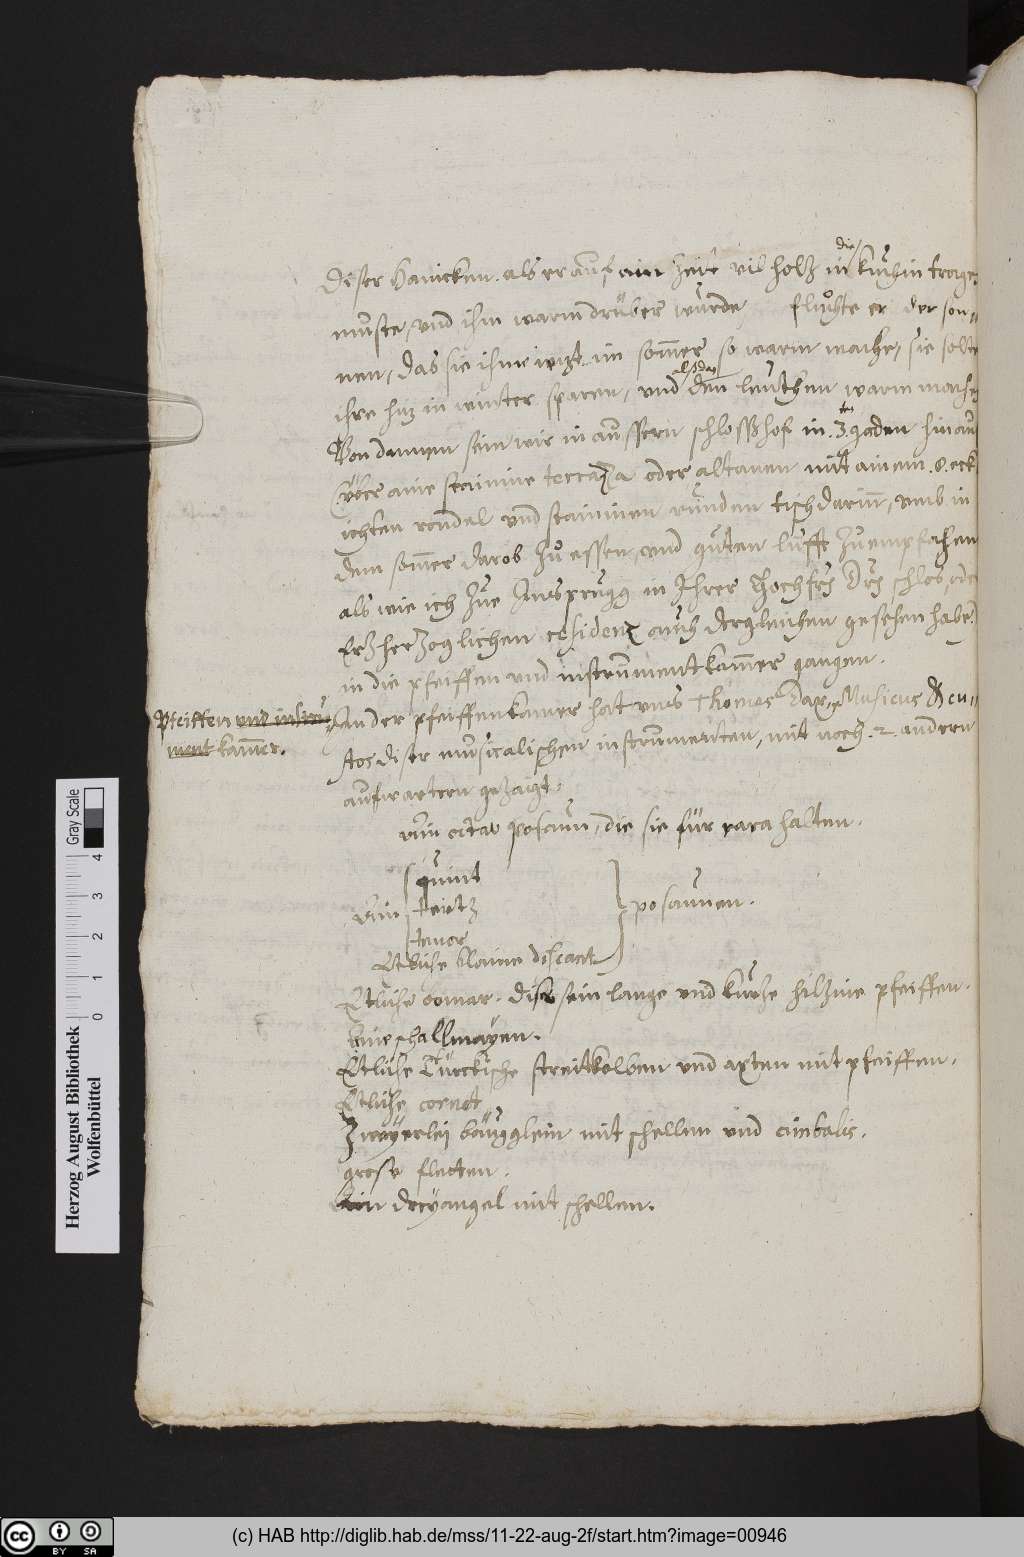 diser Hanicken. als er auf ain Zeit vil holz in die kuchin tragen
muste, vnd ihm warm drüber wurde, fluchte er der son-
nen, das sie ihme iezt im somer so warm mache, sie solte
ihre hiz in winter sparen, vnd alsdan den leuthen warm machen
Von dannen sein wir in aussern schlosshof in .3.ten gaden hinauf
Uber aine stainine terraza oder altanen mit ainem .8. eck
ichten rondel vnd staininen runden tisch darinn, vmb in
dem somer darob zu essen, vnd guten lufft zu empfahen
als wie ich zue Insprugg in Ihrer Hochfr Dr schlos, oder
Erzherzoglichen residenz auch dergleichen gesehen habe.
in die pfeiffen vnd instrument kamer gangen.
Pfeiffen und instru-
ment kamer.
In der pfeiffenkamer hat vns Thomas Dax Musicus & cu-
stos diser musicalischen instrumenten, mit noch .2. andern
aufwartern gezaigt.
ein octav posaun, die sie für rara halten.
quint
ein
tenor
posaunen.
Etliche klaine discant
Etliche bomar. dise sein lange vnd kurze hilzine pfeiffen.
wie schallmayen.
Etliche Türckische streitkolben vnd axten mit pfeiffen.
Etliche cornet
Zwayerlei bäugglein mit schellen vnd cimbalis.
grose fletten.
Ain dreyangel mit schellen.
Herzog August Bibliothek
Wolfenbüttel
0 1 2 3 4
Gray Scale
cc BY SA
(c) HAB http://diglib.hab.de/mss/11-22-aug-2f/start.htm?image=00946